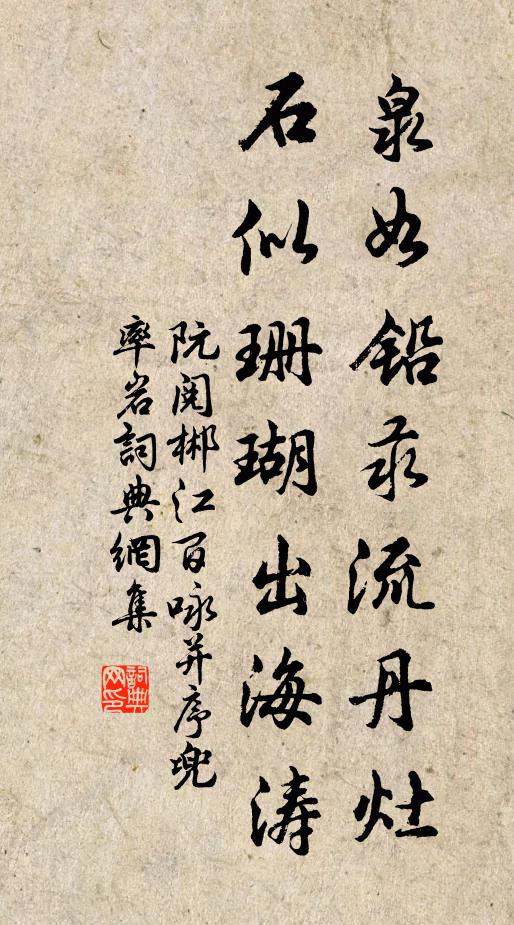 泉如铅汞流丹灶
石似珊瑚出海涛
阮阅郴江百咏并序兜
率岩詞典網集
詞典
网印